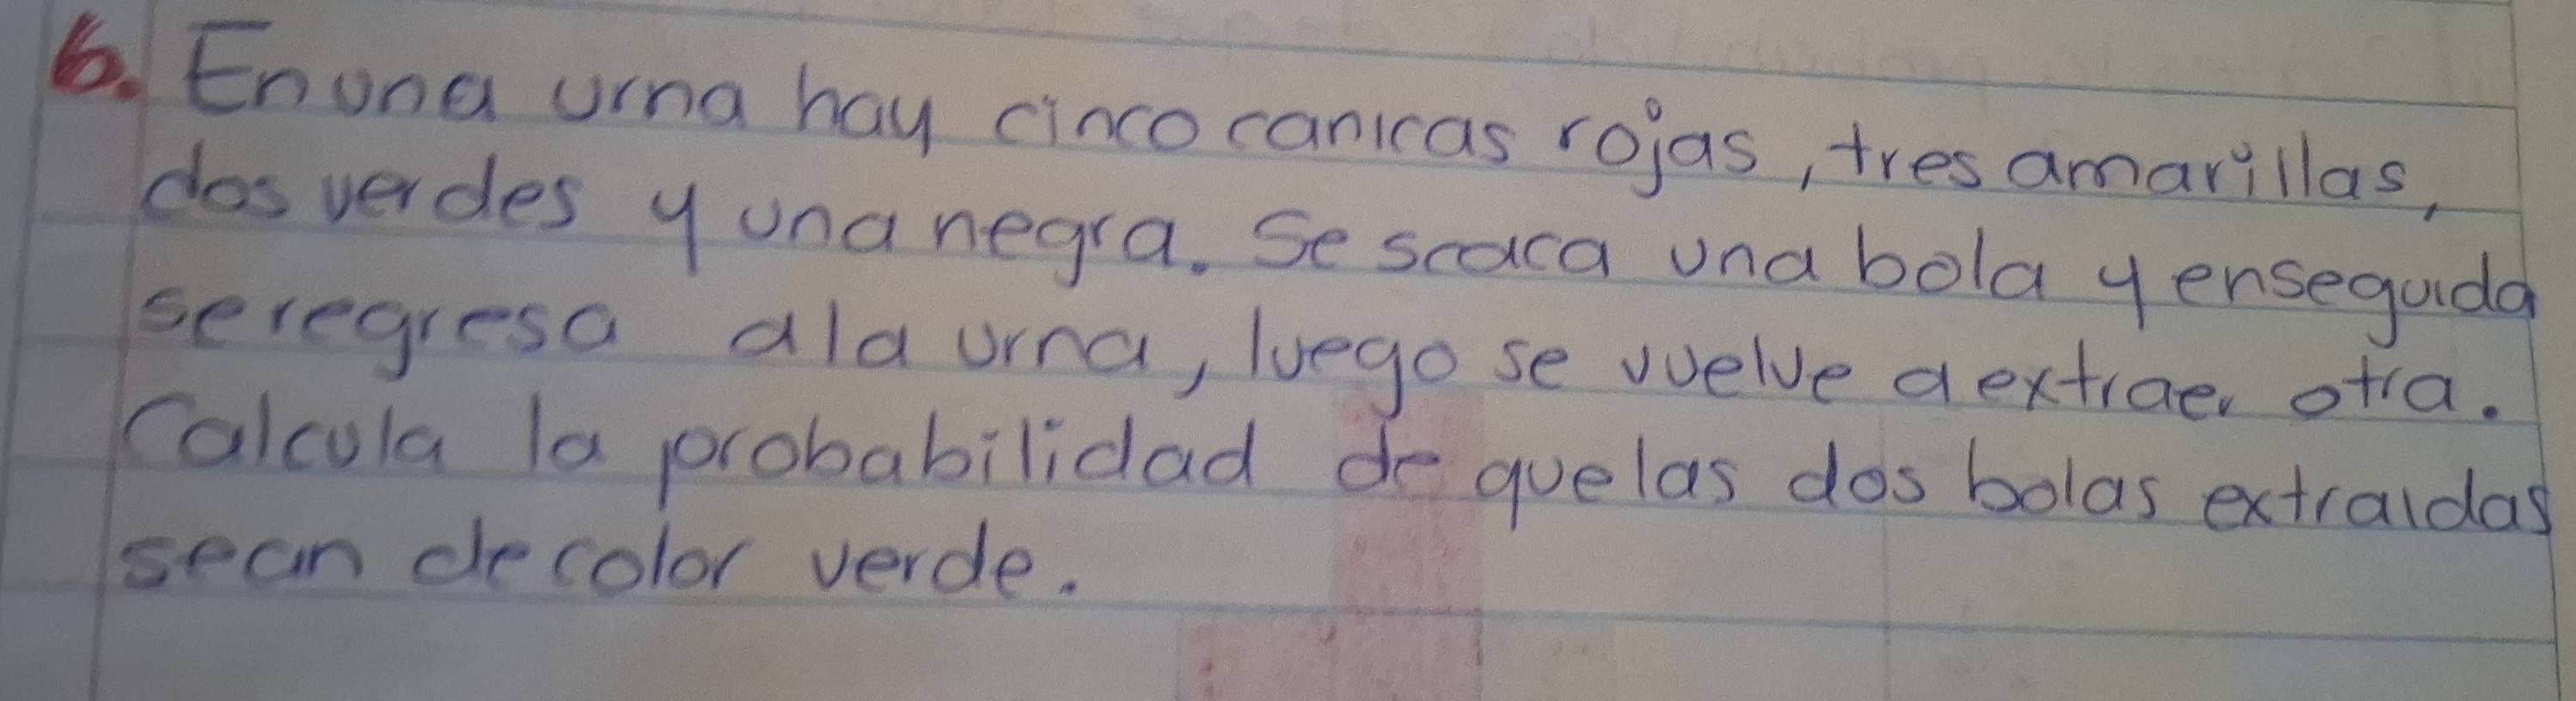 6. En una urna hay cinco canicas rojas, tres amarillas,
dos verdes y una negra. Se scaca una bola y enseguida
se regresa a la urna, luego se vuelve a extraer otra.
Calcula la probabilidad de que las dos bolas extraidas
sean de color verde.